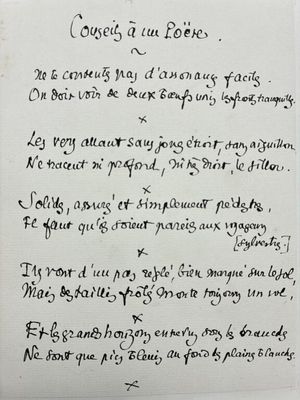 Conseils à un Poëte.
~
Ne te contente pas d'assonance facile.
On doit voir de deux bœufs unis les fronts tranquilles.
x
Les vers allant sans joug étroit, sans aiguillon,
Ne tracent ni profond, ni droit, le sillon.
x
Solides, assuré et simplement pédestres,
Il faut qu'ils soient pareils aux voyageurs
[sylvestres.]
x
Ils vont d'un pas réglé, bien marqué sur le sol,
Mais des taillis frôlés monte toujours un vol,
x
Et les grands horizons entrevus sous les branches
Ne sont que plis bleuis au fond des plaines blanches.
x